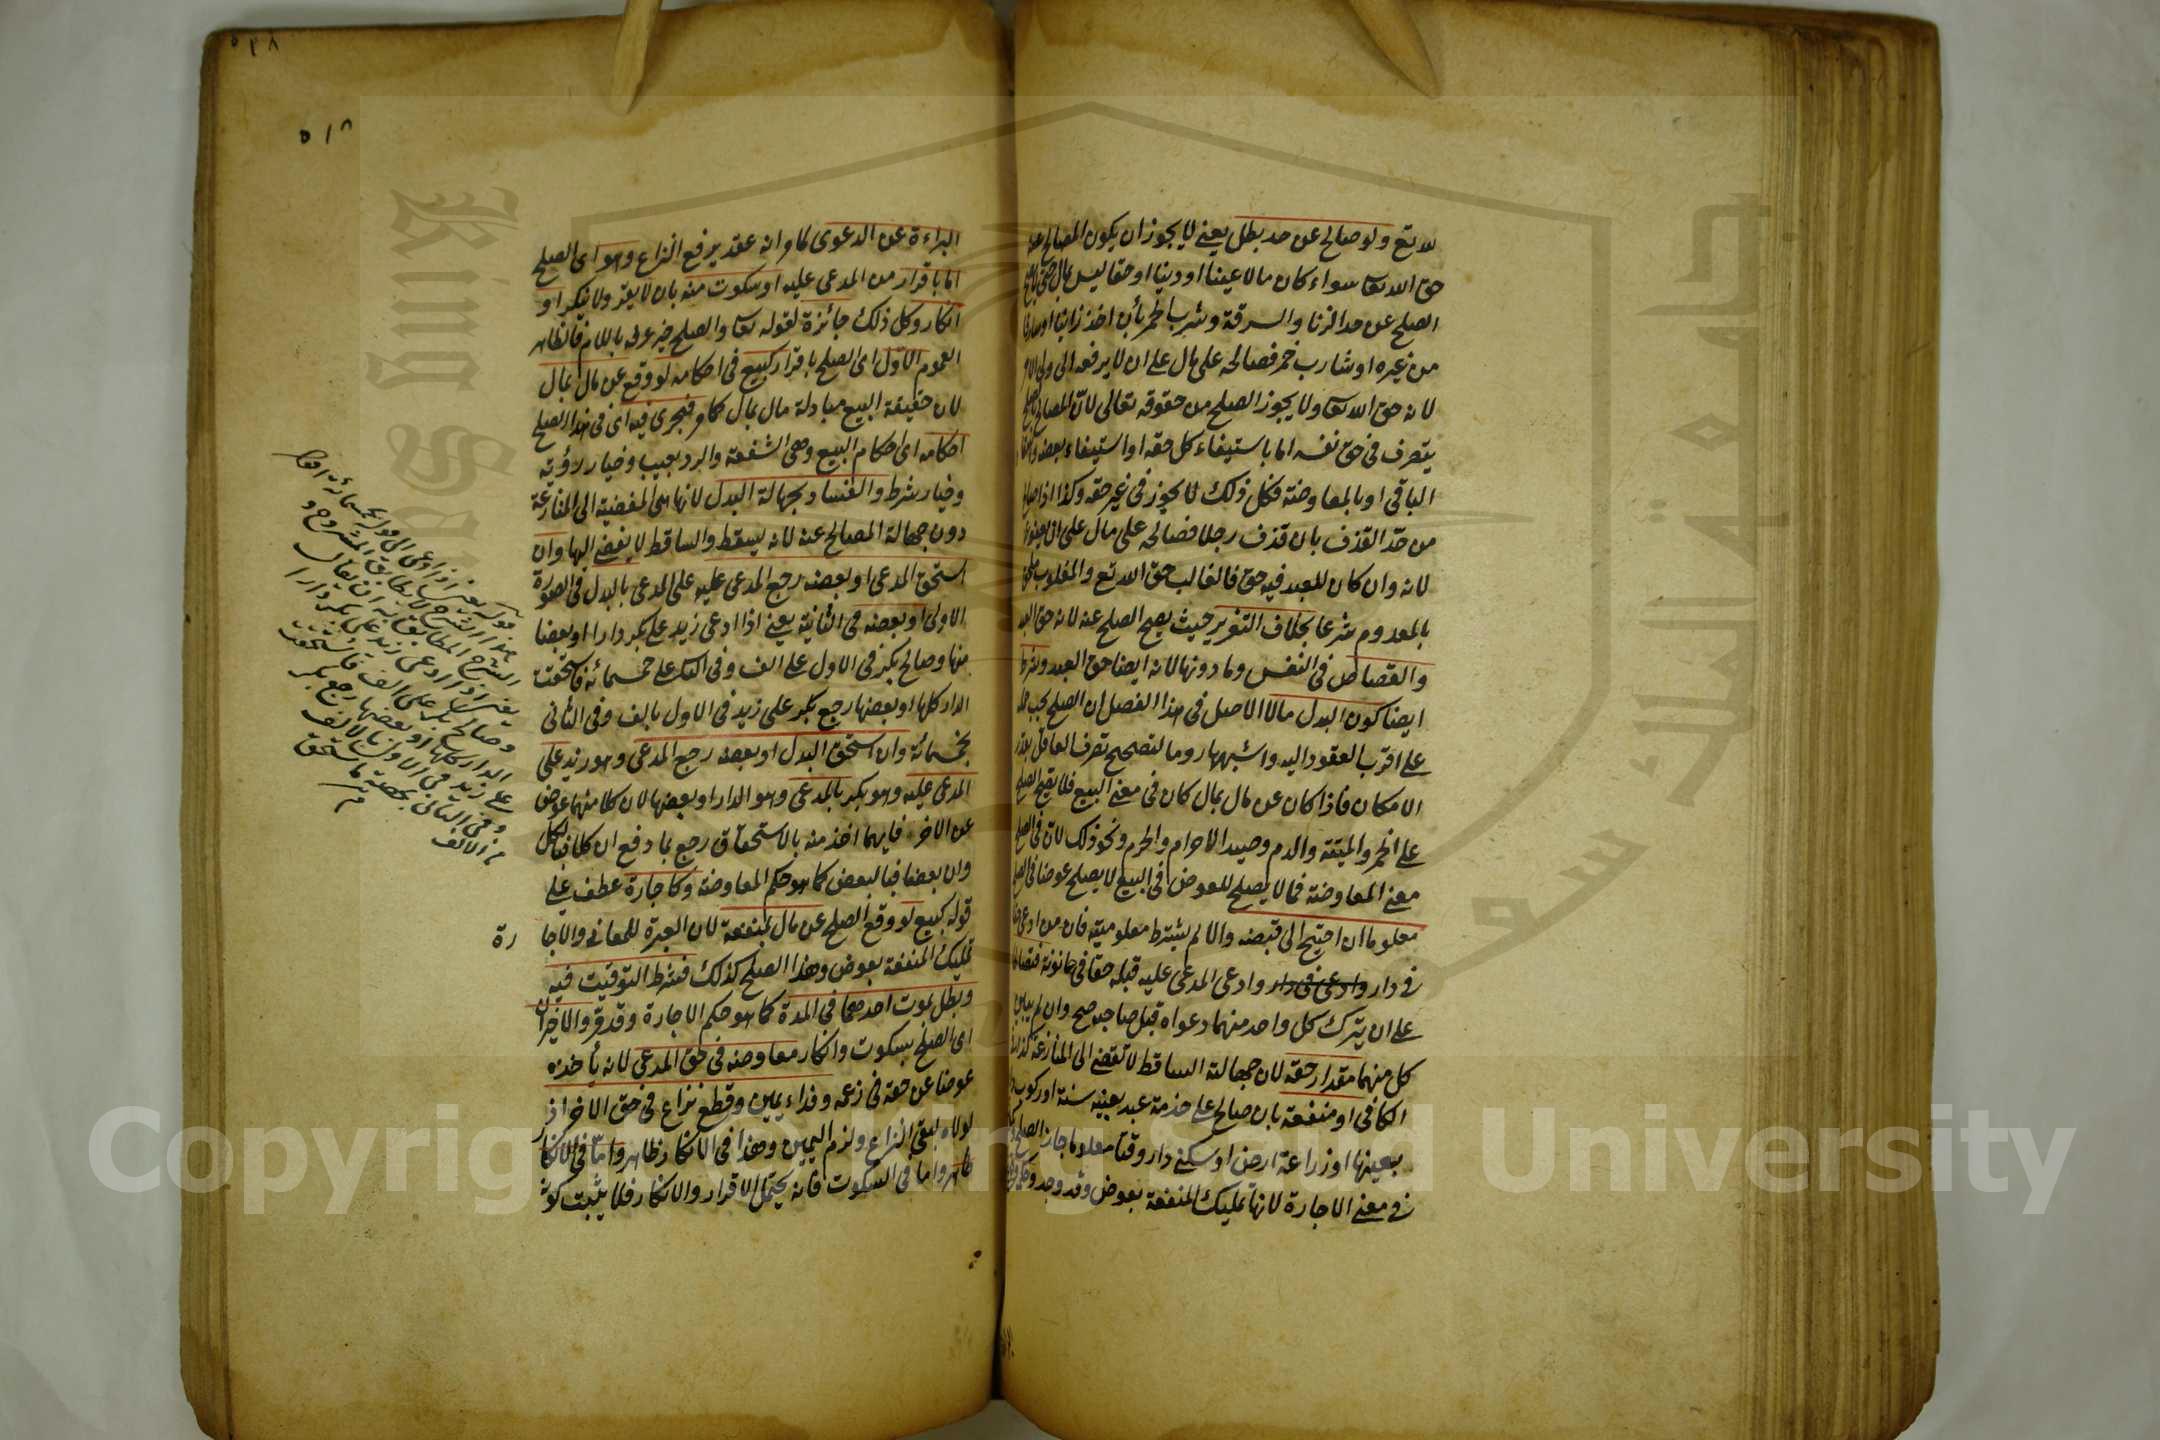 لله تع ولو صالح عن حد بطل يعني لا يجوز ان يكون المصالح عنه
حق الله تعا سواء كان مالا عينا او دينا او حقا ليس بمال حتى لا يصح
الصلح عن حد الزنا والسرقة وشرب الخمر بأن اخذ زانيا او سارقا
من غيره او شارب خمر فصالحه على مال على ان لا يرفعه الى ولي الامر
لانه حق الله تعا ولا يجوز الصلح من حقوقه تعالى لان المصالح بالصلح
يتصرف في حق نفسه اما باستيفاء كل حقه او استيفاء بعضه واسقاط
الباقي او بالمعاوضة فكل ذلك لا يجوز في غير حقه وكذا اذا صالح
من حد القذف بان قذف رجلا فصالحه على مال على ان يعفو عنه
لانه وان كان للعبد فيه حق فالغالب حق الله تع والمغلوب ملحق
بالمعدوم شرعا بخلاف التعزير حيث يصح الصلح عنه لانه حق العبد
والقصاص في النفس وما دونها لانه ايضا حق العبد وشرط
ايضا كون البدل مالا الاصل في هذا الفصل ان الصلح يجب حمله
على اقرب العقود اليه واشبهها روما لتصحيح تصرف العاقل بقدر
الامكان فاذا كان عن مال بمال كان في معنى البيع فلا يصح الصلح
على الخمر والميتة والدم وصيد الاحرام والحرم ونحو ذلك لان في الصلح
معنى المعاوضة فما لا يصلح للعوض في البيع لا يصلح عوضا في الصلح
معلوما ان احتيج الى قبضه والا لم يشترط معلوميته فان من ادعى حقا
في دار وادعى في دار وادعى المدعى عليه قبله حقا في حانوته فتصالحا
على ان يترك كل واحد منهما دعواه قبل صاحبه صح وان لم يبين
كل منهما مقدار حقه لان جهالة الساقط لا تفضي الى المنازعة كذا في
الكافي او منفعة بان صالح على خدمة عبد بعينه سنة او ركوب دابة
بعينها او زراعة ارض او سكنى دار وقتا معلوما جاز الصلح
في معنى الاجارة لانها تمليك المنفعة بعوض وقد وجد
٥٣٨
٥١٨
البراءة عن الدعوى لما مر انه عقد يرفع النزاع وهو اى الصلح
اما باقرار من المدعى عليه او سكوت منه بان لا يقر ولا ينكر او
انكار وكل ذلك جائزة لقوله تعا والصلح خير عرفه باللام فالظاهر
العموم الاول اى الصلح باقرار كبيع في احكامه لو وقع عن مال بمال
لان حقيقة البيع مبادلة مال بمال كما مر فيجرى فيه اى في هذا الصلح
احكامه اى احكام البيع وهى الشفعة والرد بعيب وخيار رؤية
وخيار شرط والفساد بجهالة البدل لانها هى المفضية الى المنازعة
دون جهالة المصالح عنه لانه يسقط والساقط لا يفضى اليها وان
استحق المدعى او بعضه رجع المدعى عليه على المدعى بالبدل في الصورة
الاولى او بعضه في الثانية يعني اذا ادعى زيد على بكر دارا او بعضا
منها وصالح بكر في الاول على الف وفي الثانى على خمسمائة فاستحقت
الدار كلها او بعضها رجع بكر على زيد في الاول بالف وفي الثانى
بخمسمائة وان استحق البدل او بعضه رجع المدعى وهو زيد على
المدعى عليه وهو بكر بالمدعى وهو الدار او بعضها لان كلا منهما عوض
عن الاخر فايهما اخذ منه بالاستحقاق رجع بما دفع ان كلا فبالكل
وان بعضا فبالبعض كما هو حكم المعاوضة وكاجارة عطف على
قوله كبيع لو وقع الصلح عن مال بمنفعة لان العبرة للمعاني والاجا رة
تمليك المنفعة بعوض وهذا الصلح كذلك فشرط التوقيت فيه
وبطل بموت احدهما في المدة كما هو حكم الاجارة وقد مر والاخيران
اى الصلح بسكوت وانكار معاوضة في حق المدعى لانه يأخذه
عوضا عن حقه في زعمه وفداء يمين وقطع نزاع في حق الاخر اذ
لولاه لبقى النزاع ولزم اليمين وهذا في الانكار ظاهر واما في الانكار
ظاهر واما في السكوت فانه يحتمل الاقرار والانكار فلا يثبت كونه
قوله يعني اذا ادعى الى قوله بخمسمائة اقول
هذا الشرح لا يطابق المشروح و
الشرح المطابق له ان يقال
يعني اذا ادعى زيد على بكر دارا
وصالح بكر على الف فاستحقت
الدار كلها او بعضها رجع بكر
على زيد في الاول بالالف
وفي الثاني بحصة ما استحق
من الالف م م